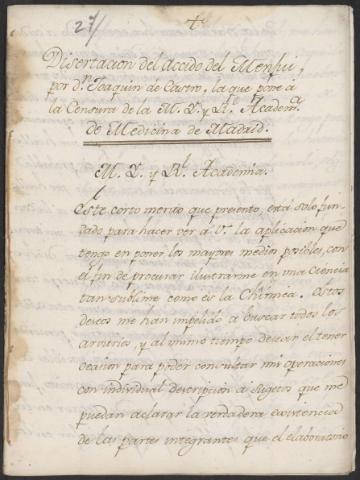 27//
Disertacion del accido del Menjui,
por d.n Joaquin de Castro, la que pone à
la Censura de la M. Y. y R.l Academ.a
de Medicina de Madrid.
M. Y. y R.l Academia.
Este corto merito que presento, está solo fun-
dado para hacer ver a V. la aplicacion que
tengo en poner los mayores medios posibles, con
el fin de procurar ilustrarme en una Ciencia
tan sublime como es la Chîmica. Estos
deseos me han impelido a buscar todos los
arvitrios, y al mismo tiempo desear el tener
ocasion para poder consultar mis operaciones
con individual descripcion à Sugetos que me
puedan aclarar la verdadera existencia
de las partes integrantes que el elaboratorio